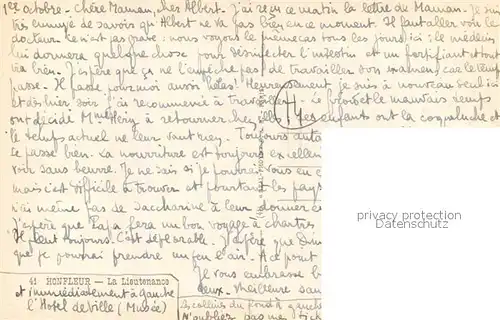 1er Octobre - Chère Maman, cher Albert. J'ai reçu ce matin la lettre de Maman. Je suis
très ennuyé de savoir qu'Albert ne va pas bien en ce moment. Il faut aller voir le
docteur ce n'est pas grave: nous voyons le même cas tous les jours ici: le médecin
lui donnera quelque chose pour désinfecter l'intestin et un fortifiant et tout
ira bien. J'espère que ça ne l'empêche pas de travailler son examen, car le temps
passe. Il passe pour moi aussi hélas! Heureusement je suis à nouveau seul ici
et dès hier soir j'ai recommencé à travailler. Le froid et le mauvais temps
ont décidé Mme Héry à retourner chez elle. Les enfants ont la coqueluche et
le temps actuel ne leur vaut rien. Toujours
se passe bien. La nourriture est toujours excellen
voir sans beurre. Je ne sais si je pourrai vous en
mais c'est difficile à trouver et pourtant les pays
n'ai même pas de saccharine à leur donner
J'espère que Papa fera un bon voyage à Chartres
Il pleut toujours. C'est déplorable. J'espère que
que je pourrai prendre un peu l'air. A ce point
Je vous embrasse
deux. Meilleure san
41 HONFLEUR - La Lieutenance
et immédiatement à gauche
l'Hôtel de Ville (Musée)
les collines du fond à gauche
N'oubliez pas mes tick
privacy protection
Datenschutz